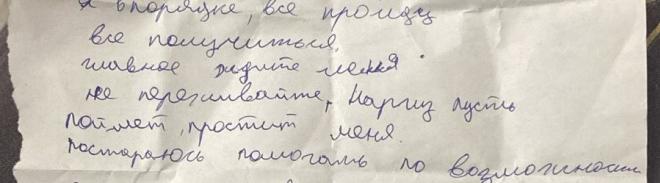 я впорядке, все пройду
все получиться,
главное ждите меня
не переживайте, Наргиз пусть
поймет, простит меня.
постараюсь помогать по возможности